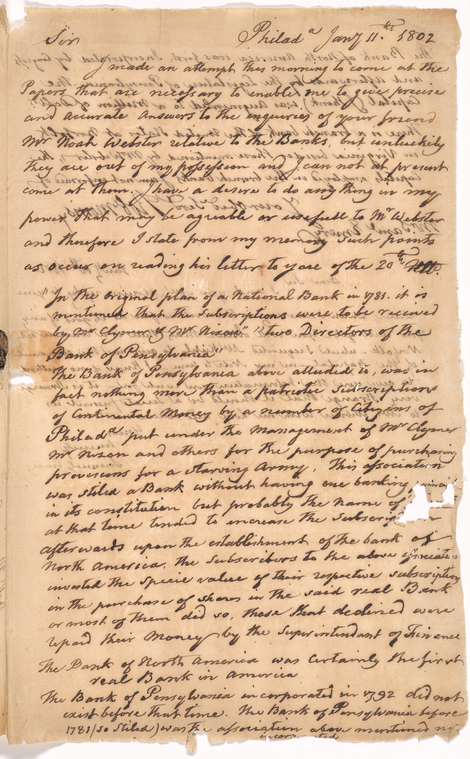 Sir Philad.a Jany 11.th 1802
I made an attempt this morning to come at the
Papers that are necessary to enable me to give precise
and accurate Answers to the enquiries of your friend
Mr Noah Webster relative to the Banks, but unluckily
they are out of my possession and I can not at present
come at them. I have a desire to do any thing in my
power that may be agreable or usefull to Mr Webster
and therefore I state from my memory Such points
as occur on reading his letter to you of the 20th
In the original plan of a National Bank in 1781. it is
mentioned that the Subscriptions were to be received
by Mr Clymer & Mr Nixon" "two Directors of the
Bank of Pensylvania"
The Bank of Pensylvania above alluded to, was in
fact nothing more than a patriotic Subscription
of Continental Money by a number of Citizens of
Philad.a put under the Management of Mr Clymer
Mr Nixon and others for the purpose of purchasing
provisions for a Starving Army. This association
was stiled a Bank without having one banking
in its constitution but probably the name of
at that time tended to encrease the
afterwards upon the establishment of the bank of
North America, the Subscribers to the above
invested the Specie value of their respective subscriptions
in the purchase of shares in the said real Bank
or most of them did so, those that declined were
repaid their Money by the Superintendant of Finance
The Bank of North America was Certainly the first
real Bank in America
The Bank of Pensylvania incorporated in 1792 did not
exist before that time. The Bank of Pensylvania before
1781 (so Stiled) was the association above mentioned